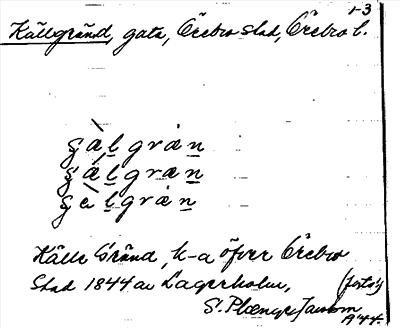 1-3
Källgränd, gata, Örebro stad, Örebro l.
gälgrän
gälgrän
gèlgrän
Källe Gränd, k-a öfver Örebro
Stad 1844 av Lagerholm,
S. Plænge Janson
1944.